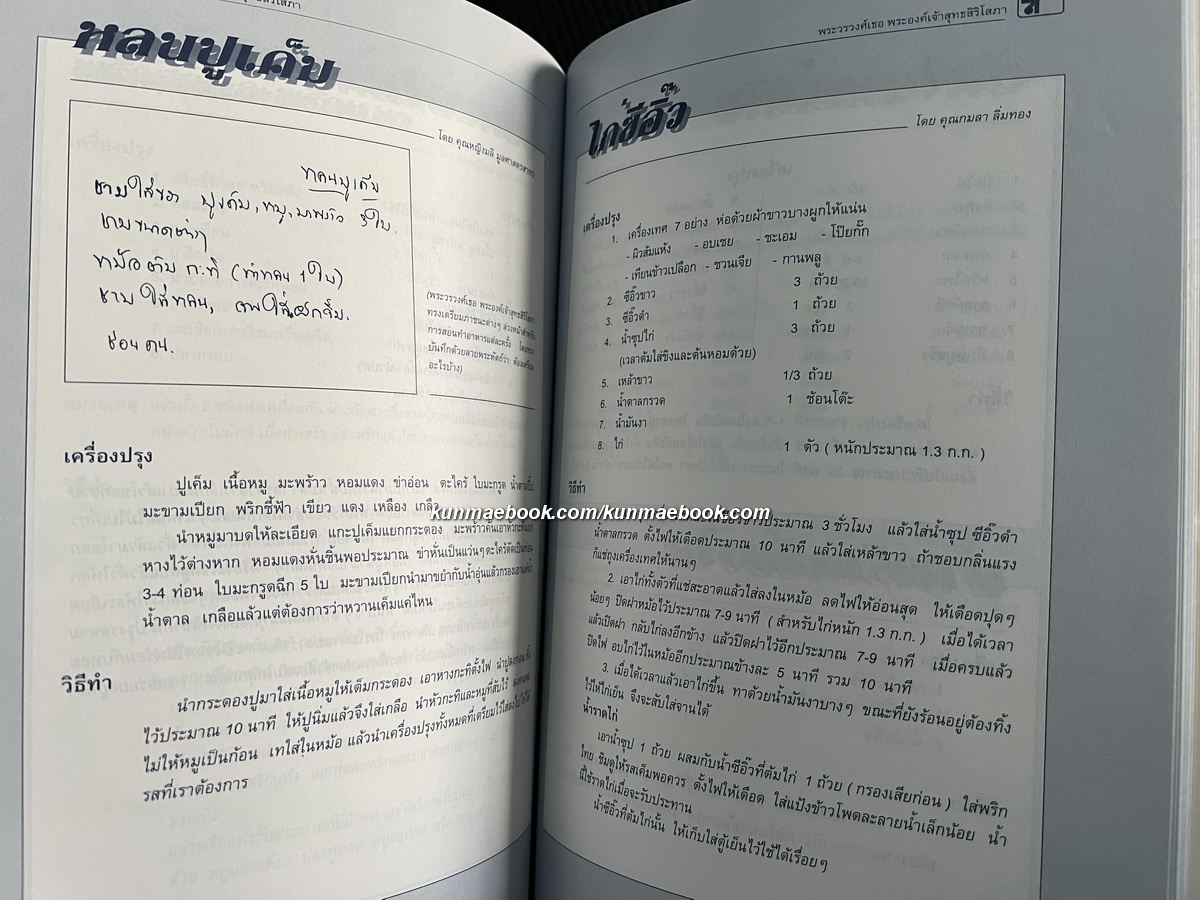 สุทธสิริโสภา
หลนปูเค็ม
โดย คุณหญิงมลิ
หลนปูเค็ม
ชามใส่ของ ปูเค็ม, หมู, มะพร้าว 3 ใบ.
ชามขนาดต่างๆ
หม้อต้ม กะทิ
ช้อน
(พระวรวงศ์เธอ พระองค์เจ้าสุทธสิริโสภา
ทรงเตรียมภาชนะต่างๆ ล่วงหน้าสำหรับ
การสอนทำอาหารแต่ละครั้ง โดยทรง
บันทึกด้วยลายพระหัตถ์ว่า ต้องเตรียม
อะไรบ้าง)
เครื่องปรุง
ปูเค็ม เนื้อหมู มะพร้าว หอมแดง ข่าอ่อน ตะไคร้ ใบมะกรูด น้ำตาลปี๊บ
มะขามเปียก พริกชี้ฟ้า เขียว แดง เหลือง เกลือ
นำหมูมาบดให้ละเอียด แกะปูเค็มแยกกระดอง มะพร้าวคั้นเอาหัวกะทิแยก
หางไว้ต่างหาก หอมแดงหั่นชิ้นพอประมาณ ข่าหั่นเป็นแว่นๆ ตะไคร้ตัดเป็นท่อน
3-4 ท่อน ใบมะกรูดฉีก 5 ใบ มะขามเปียกนำมาขยำกับน้ำอุ่นแล้วกรองเอาแต่น้ำ
น้ำตาล เกลือแล้วแต่ต้องการว่าหวานเค็มแค่ไหน
วิธีทำ
นำกระดองปูมาใส่เนื้อหมูให้เต็มกระดอง เอาหางกะทิตั้งไฟ นำปูลงก่อน ทิ้ง
ไว้ประมาณ 10 นาที ให้ปูนิ่มแล้วจึงใส่เกลือ นำหัวกะทิและหมูที่สับไว้
ไม่ให้หมูเป็นก้อน เทใส่ในหม้อ แล้วนำเครื่องปรุงทั้งหมดที่เตรียมไว้ใส่ลงไป
รสที่เราต้องการ
พระวรวงศ์เธอ พระองค์เจ้าสุทธสิริโสภา
ไก่ซีอิ๊ว
โดย คุณกมลา ลิ่มทอง
เครื่องปรุง
1. เครื่องเทศ 7 อย่าง ห่อด้วยผ้าขาวบางผูกให้แน่น
- ผิวส้มแห้ง - อบเชย - ชะเอม - โป๊ยกั๊ก
- เทียนข้าวเปลือก - ชวนเจีย - กานพลู
2. ซีอิ๊วขาว 3 ถ้วย
3. ซีอิ๊วดำ 1 ถ้วย
4. น้ำซุปไก่ 3 ถ้วย
(เวลาต้มใส่ขิงและต้นหอมด้วย)
5. เหล้าขาว 1/3 ถ้วย
6. น้ำตาลกรวด 1 ช้อนโต๊ะ
7. น้ำมันงา
8. ไก่ 1 ตัว ( หนักประมาณ 1.3 ก.ก. )
วิธีทำ
kunmaebook.com/kunmaebook.com
ประมาณ 3 ชั่วโมง แล้วใส่น้ำซุป ซีอิ๊วดำ
น้ำตาลกรวด ตั้งไฟให้เดือดประมาณ 10 นาที แล้วใส่เหล้าขาว ถ้าชอบกลิ่นแรง
ก็แช่ถุงเครื่องเทศให้นานๆ
2. เอาไก่ทั้งตัวที่แช่สะอาดแล้วใส่ลงในหม้อ ลดไฟให้อ่อนสุด ให้เดือดปุดๆ
น้อยๆ ปิดฝาหม้อไว้ประมาณ 7-9 นาที ( สำหรับไก่หนัก 1.3 ก.ก. ) เมื่อได้เวลา
แล้วเปิดฝา กลับไก่ลงอีกข้าง แล้วปิดฝาไว้อีกประมาณ 7-9 นาที เมื่อครบแล้ว
ปิดไฟ อบไก่ไว้ในหม้ออีกประมาณข้างละ 5 นาที รวม 10 นาที
3. เมื่อได้เวลาแล้วเอาไก่ขึ้น ทาด้วยน้ำมันงาบางๆ ขณะที่ยังร้อนอยู่ต้องทิ้ง
ไว้ให้ไก่เย็น จึงจะสับใส่จานได้
น้ำราดไก่
เอาน้ำซุป 1 ถ้วย ผสมกับน้ำซีอิ๊วที่ต้มไก่ 1 ถ้วย ( กรองเสียก่อน ) ใส่พริก
ไทย ชิมดูให้รสเค็มพอควร ตั้งไฟให้เดือด ใส่แป้งข้าวโพดละลายน้ำเล็กน้อย น้ำ
นี้ใช้ราดไก่เมื่อจะรับประทาน
น้ำซีอิ๊วที่ต้มไก่นั้น ให้เก็บใส่ตู้เย็นไว้ใช้ได้เรื่อยๆ